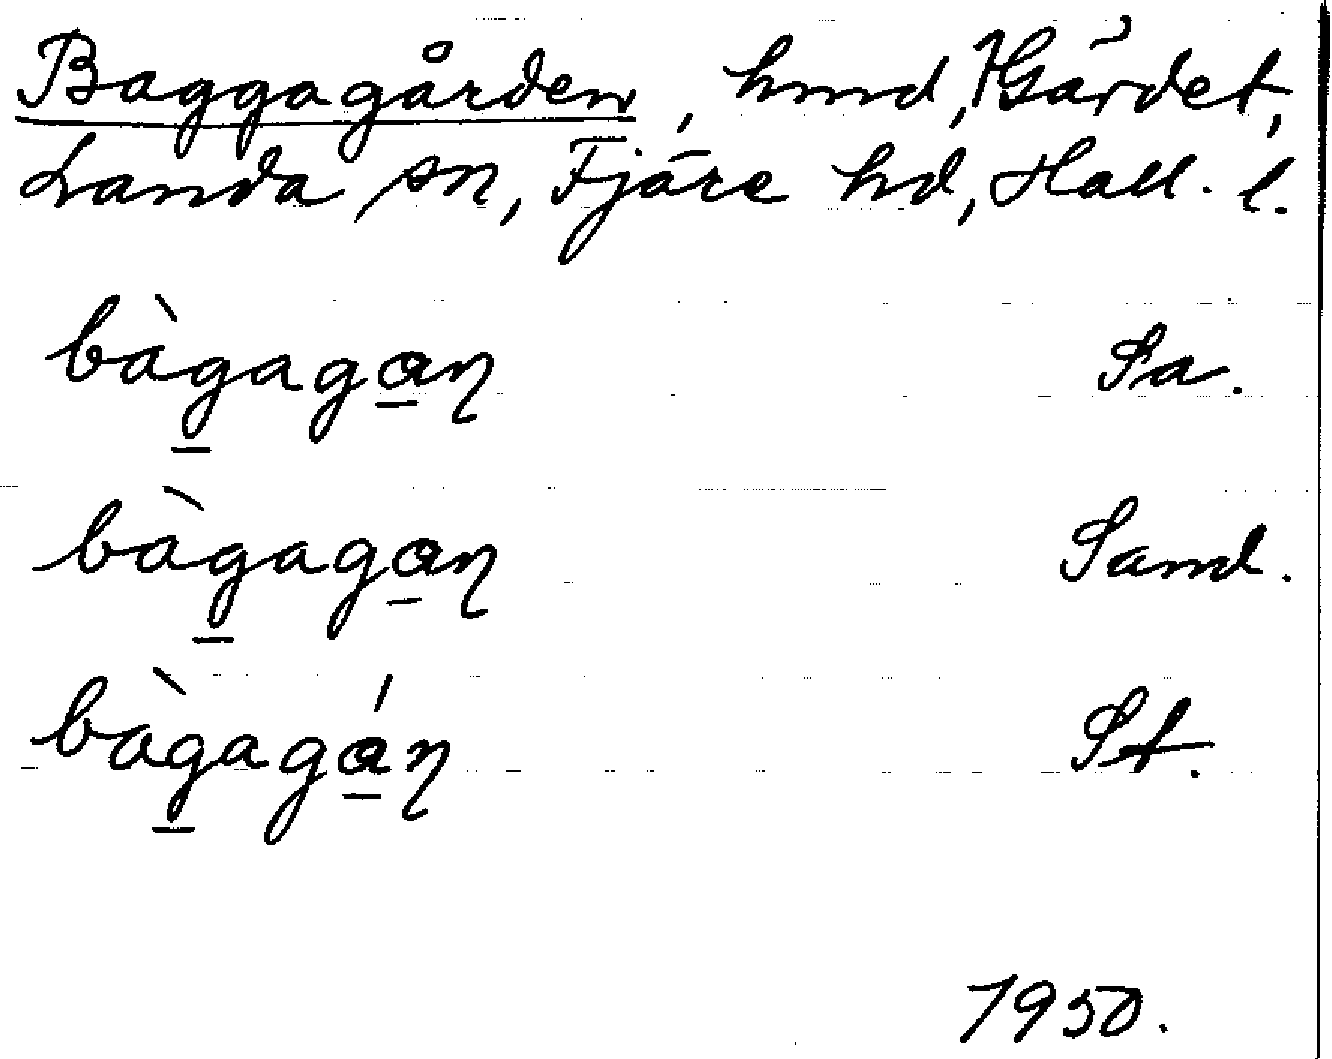 Baggagården, hmd, 1 Gärdet,
Landa sn, Fjäre hd, Hall. l.
bàgagan Sa.
bàgagan Sand.
bàgagán St.
1950.